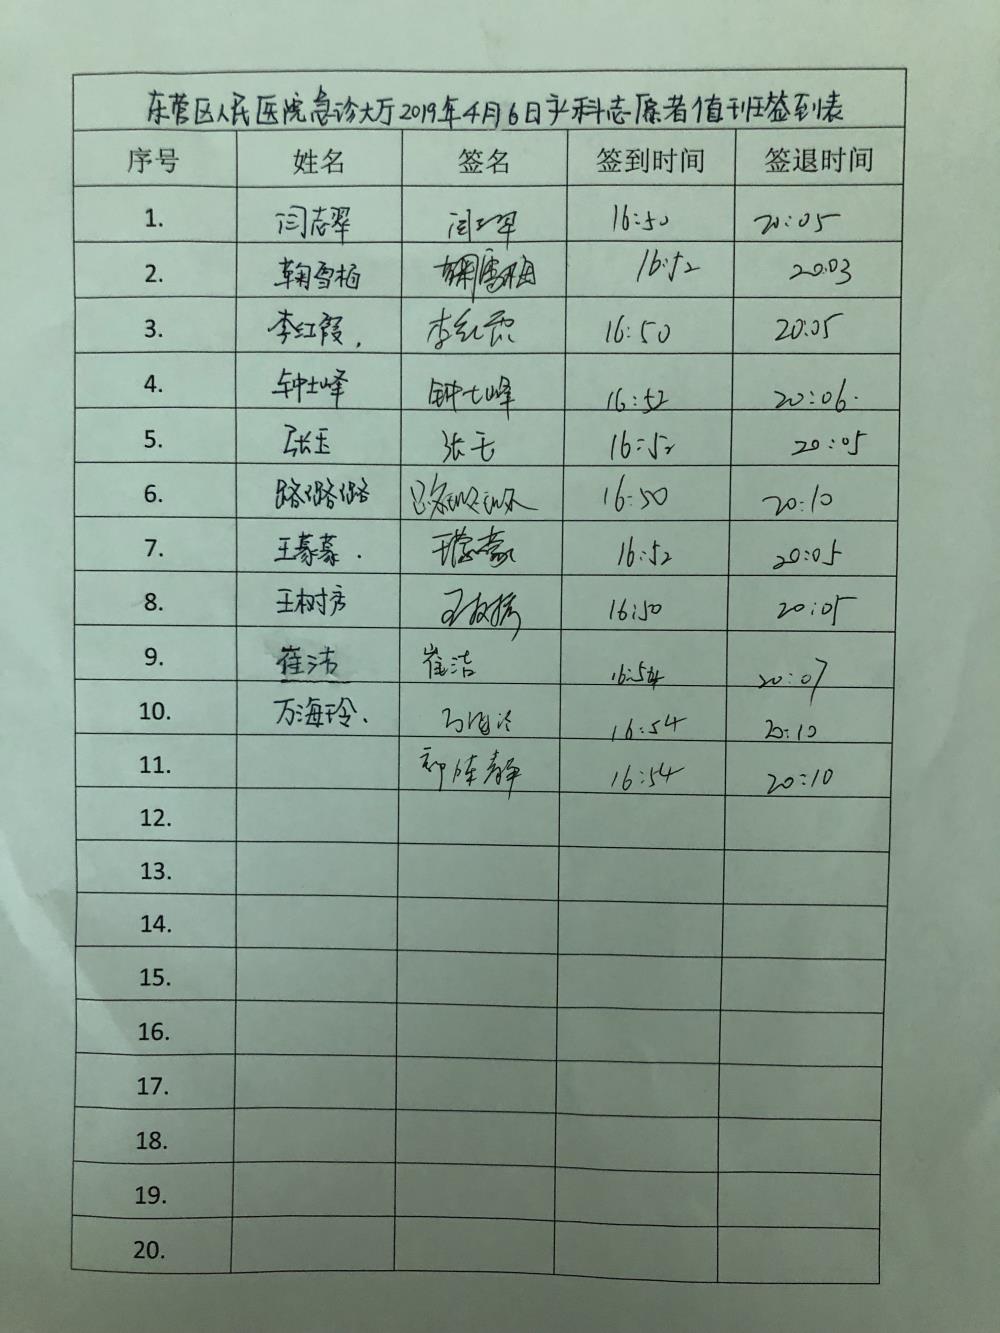 东营区人民医院急诊大厅2019年4月6日产科志愿者值班签到表
序号 姓名 签名 签到时间 签退时间
1. 闫志翠 16:50 20:05
2. 鞠雪梅 鞠雪梅 16:52 20:03
3. 李红霞. 李红霞 16:50 20:05
4. 钟士峰 钟士峰 16:52 20:06.
5. 张玉 张玉 16:52 20:05
6. 路璐璐 16:50 20:10
7. 王蒙蒙. 王蒙蒙 16:52 20:05
8. 王树芳 16:50 20:05
9. 崔洁 崔洁 16:54 20:07
10. 万海玲. 16:54 20:10
11. 16:54 20:10
12.
13.
14.
15.
16.
17.
18.
19.
20.